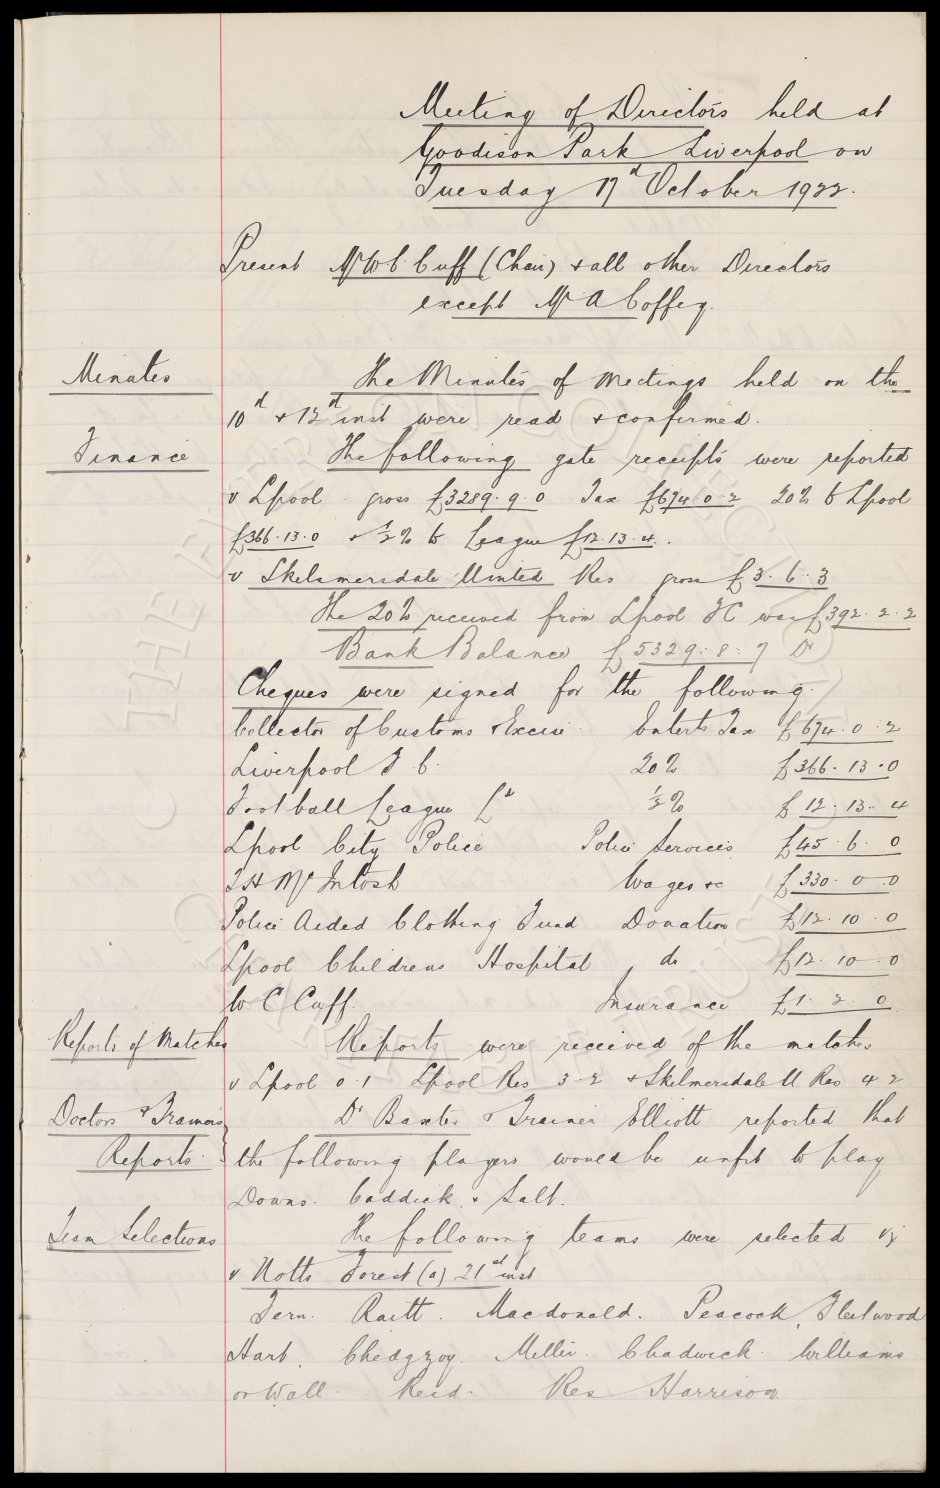 Meeting of Directors held at
Goodison Park Liverpool on
Tuesday 17th October 1922.
Present Mr W C Cuff (Chair) & all other Directors
except Mr A Coffey.
Minutes The Minutes of Meetings held on the
10th & 12th inst were read & confirmed.
Finance The following gate receipts were reported
v Lpool gross £3289.9.0 Tax £674.0.2 20% to Lpool
£366.13.0 & ½% to League £12.13.4.
v Skelmersdale United Res gross £3.6.3
The 20% received from Lpool FC was £392.2.2
Bank Balance £5329.8.7 Dr
Cheques were signed for the following.
Collector of Customs & Excise Enterts Tax £674.0.2
Liverpool F.C. 20% £366.13.0
Football League Ld ½% £12.13.4
Lpool City Police Police Services £45.6.0
T H McIntosh Wages &c £330.0.0
Police Aided Clothing Fund Donation £12.10.0
Lpool Childrens Hospital do £12.10.0
W C Cuff. Insurance £1.2.0
Reports of Matches Reports were received of the matches
v Lpool 0.1 Lpool Res 3-2 & Skelmersdale U Res 4 2
Doctors & Trainers Dr Baxter & Trainer Elliott reported that
Reports. the following players would be unfit to play
Downs. Caddick. & Salt.
Team Selections The following teams were selected viz
v Notts Forest (a) 21st inst
Fern. Raitt. Macdonald. Peacock. Fleetwood
Hart. Chedgzoy. Miller. Chadwick. Williams
or Wall. Reid. Res Harrison